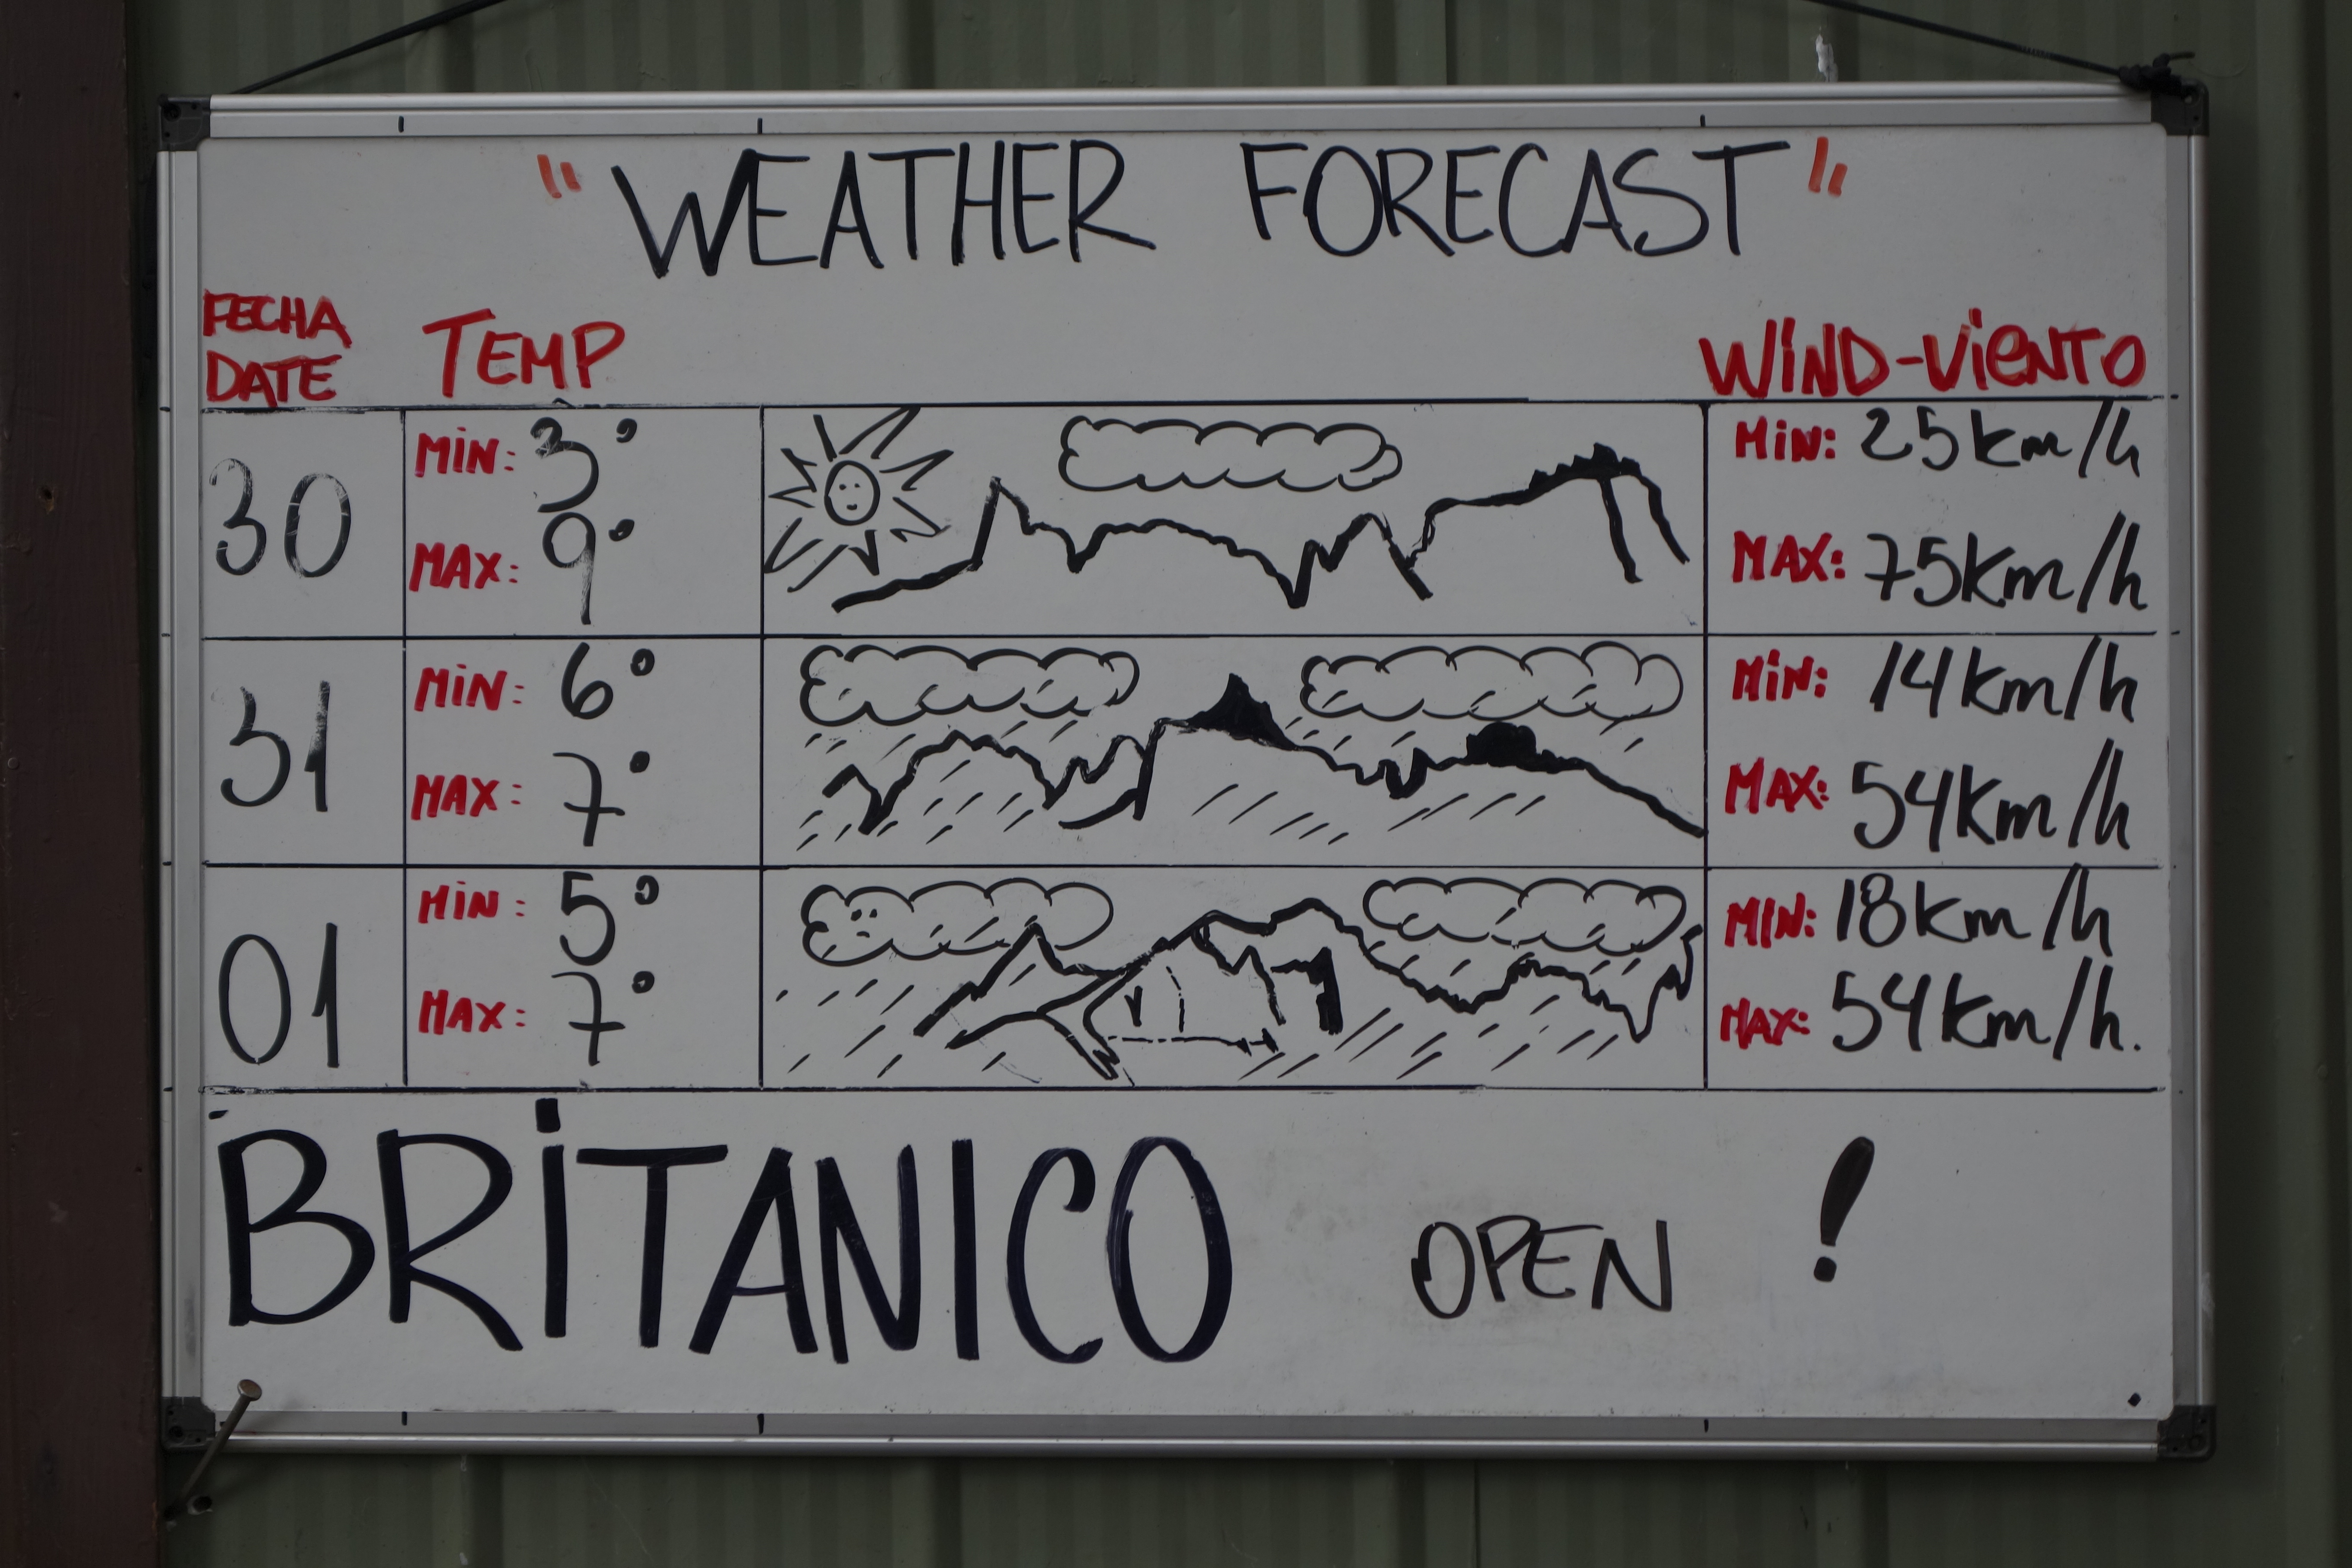 "WEATHER FORECAST"
FECHA
DATE
TEMP
WIND-VIENTO
30
MIN: 3°
MAX: 9°
MIN: 25km/h
MAX: 75km/h
31
MIN: 6°
MAX: 7°
MIN: 14km/h
MAX: 54km/h
01
MIN: 5°
MAX: 7°
MIN: 18km/h
MAX: 54km/h.
BRITANICO OPEN !